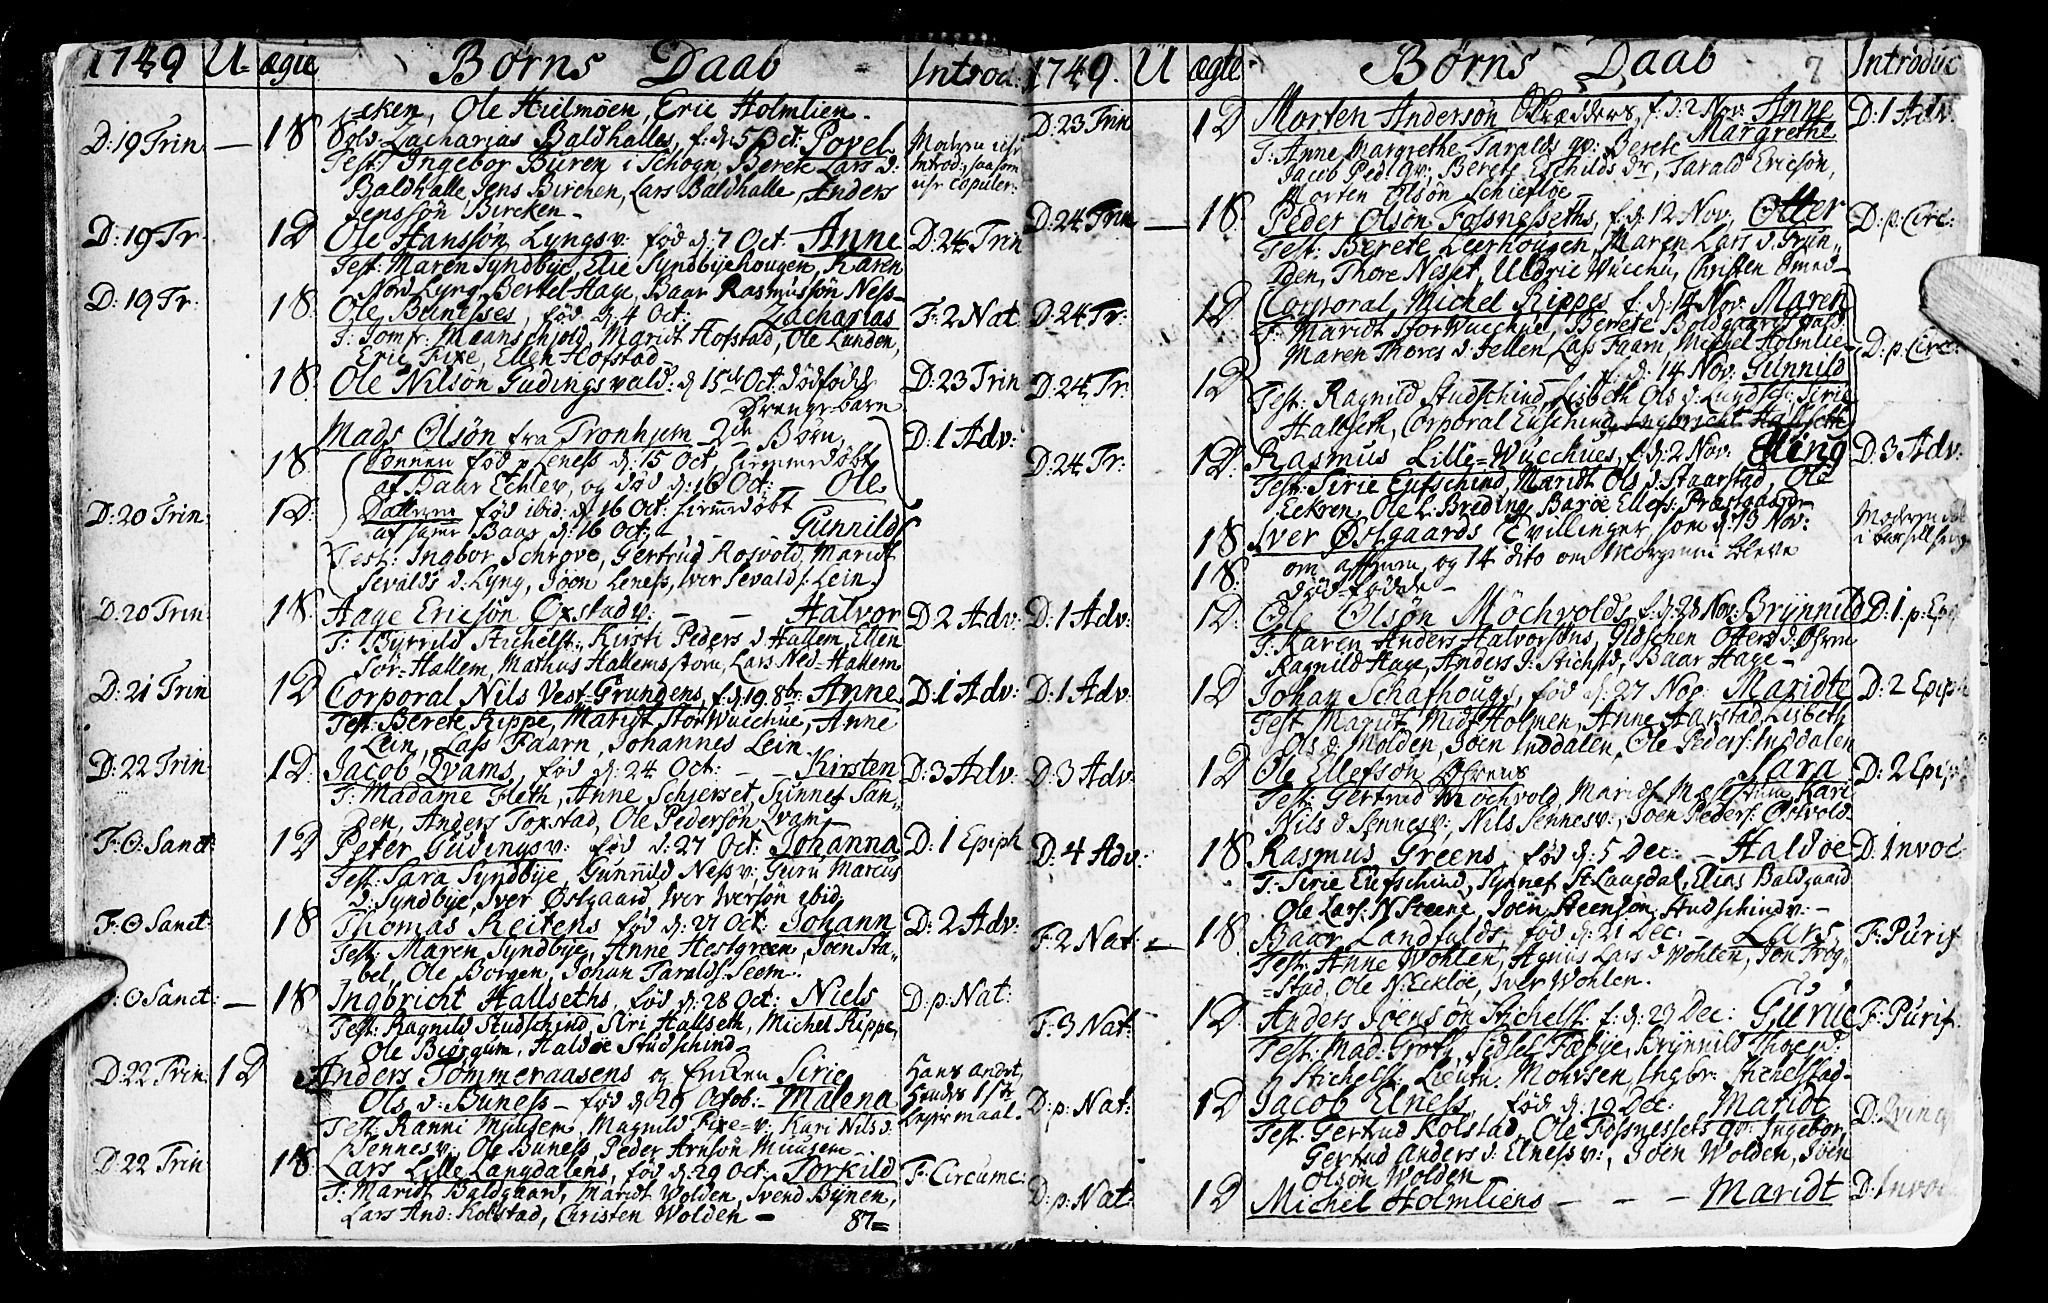 1749 U- ægte Børns Daab Introd:
ecken, Ole Hielmoen, Eric Holmlien.
D: 19 Trin — 1 S Sold. Zacharias Baldhalles, f: d: 5 Oct: Povel
Test: Ingebor Buren i Schogn, Berete Lars d:
Baldhalle, Jens Birchen, Lars Baldhalle, Anders
Jenssøn Bircken -
Modren iche
Introd: saasom
iche copuler:
D: 19 Tr. 1 D Ole Hanssøn Lyngsv: fød d: 7 Oct: Anne D: 24 Trin
Test: Maren Syndbye, Elie Syndbyehougen, Karen
Nord Lyng, Bertel Hage, Baar Rasmussøn Ness-
D: 19 Tr: 1 S Ole Bunesses, fød d: 4 Oct: Zacharias F: 2 Nat:
T: Jomfr: Maanschiold, Maridt Hofstad, Ole Lunden,
Eric Fixe, Ellen Hofstad -
1 S Ole Nilsøn Gudingsvald: d: 15de Oct: dødfødt D: 23 Trin
Drengebarn
Mads Olsøn fra Tronhjem 2de Børn, D: 1 Adv:
1 S Sønnen fød p: Leness d: 15 Oct, hiemmedøbt
af Baar Echlev, og død d: 16 Oct: - Ole
D: 20 Trin: 1 D: Datteren fød ibid: d: 16 Oct: hiemedøbt
af samme Baar d: 16 Oct: - Gunnild
Test: Ingbor Schrove, Gertrud Rosvold, Maridt
Sevalds d: Lyng, Joen Leness, Iver Sevalds: Lein
D: 20 Trin: 1 S Aage Ericsøn Oxstadv: - - Halvor D: 2 Adv:
T: Byrrild Stichelst: Kirsti Peders d Hallem, Ellen
Sør-Hallem, Mathus Hallemsstorn, Lars Ned-Hallem
D: 21 Trin 1 D Corporal Nils Vest-Grundens, f: d: 19. 8br: Anne D: 1 Adv:
Test: Berete Rippe, Maridt StorWucchue, Anne
Lein, Lass Faarn, Johannes Lein
D: 22 Trin 1 D: Jacob Qvams, fød d: 24 Oct: - - Kirsten D: 3 Adv:
T: Madame Fleth, Anne Schjerset, Sunnef San-
den, Anders Toxstad, Ole Pedersøn Qvam
F: O: Sanct: 1 D Peter Gudingsv: fød d: 27 Oct: Johanna D: 1 Epiph
Test: Sara Syndbye, Gunnild Nessv: Guru Marcus
d: Syndbye, Iver Østgaard, Iver Iversøn ibid.
F: O Sanct: 1 S Thomas Reitens fød d: 27 Oct: Johann D: 2 Adv:
Test: Maren Syndbye, Anne Hestgreen, Joen Sta-
bel, Ole Borgen, Johan Taralds: Seem.
F: O Sanct: — 1 S Ingbricht Hallseths, fød d: 28 Oct: Niels D: p: Nat:
Test: Ragnild Studschind, Siri Hallseth, Michel Rippe,
Ole Biørgum, Haldoe Studschind -
D: 22 Trin: 1 D Anders Tømmeraasens og Enken Sirie
Ols d: Buness - fød d: 29 Octob: - Malena
Test: Ranni Muusem, Magnild Fixe=v: Kari Nils d:
Sennesv: Ole Buness, Peder Arnsøn Muusem -
Hans andet,
Hendes 1ste
Leyermaal.
D: 22 Trin 1 S Lars Lille Langdalens, fød d: 29 Oct: Torkild F: Circumc:
T: Maridt Baldgaard, Maridt Wolden, Svend Bynen,
Lars And: Kolstad, Christen Wolden - 87=
1749. U ægte Børns Daab 7 Introduc
D: 23 Trin 1 D Morten Andersøn Skredders, f: d: 2 Nov: Anne D: 1 Adv.
Margrethe
T: Anne Margrethe Taralds qv: Berete
Jacob Ped: qv:, Berete Eschilds dr, Tarald Ericsøn,
Morten Olsøn Schiefloe -
D: 24 Trin — 1 S Peder Olsøn Fossnesseths, f: d: 12 Nov: Otter D: p: Circ:
Test: Berete Leerhougen, Maren Lars d Grun-
den, Thore Nesset, Uldric Wucchu, Christen Smed -
D: 24 Tr: 1 D Corporal Michel Rippes f: d: 14 Nov: Maren
T: Maridt StorWucchue, Berete Boldgaards vald
Maren Thores d: Jellen, Lass Faarn, Michel Holmlie- D: p: Circ:
D: 24 Tr: 1 D f: d: 14 Nov: Gunnild
Test: Ragnild Studschind, Lisbeth Ols d Lundsch: Sirie
Hallseth, Corporal Eufschind, Ingbricht Hallseth
D: 24 Tr: 1 D: Rasmus Lille=Wucchues, f: d: 2 Nov: D: 3 Adv:
Test: Sirie Eufschind, Maridt Ols d: Staarstad, Ole
Eckren, Ole L: Breding, Baroe Ellefs: Præstgaard-
1 S Iver Østgaards Tvillinger som d: 13 Nov:
1 S om afftenen, og 14 dito om Morgenen bleve
død-fødde -
D: 1 Adv: 1 D: Ole Olsøn Mochvolds, f: d: 28 Nov: Brynnild D: 1. p: Epi
T: Karen Anders Halvorsøns, Gidschen Otters d: Øhren
Ragnild Hage, Anders J: Stichlst., Baar Hage -
D: 1 Adv: 1 D Johan Schafhougs, fød d: 27 Nov: Maridte D: 2 Epiph
Test Maridt Midt Holmen, Anne Aarstad, Lisbeth
Ols d: Molden, Joen Inddalen, Ole Peders: Inddalen
D: 3 Adv: 1 D Ole Ellefsøn Øhrens Sara D: 2 Epiph
Test: Gertrud Mochvold, Maridt Kari
Nils d Sennesv: Nils Sennesv:, Joen Peders: Østvold-
D: 4 Adv: 1 S Rasmus Greens, fød d: 5 Dec: - Haldoe D: Invoc:
T: Sirie Eufschind, Synnef St: Langdal, Elias Baldgaard
Ole Lars: N Steene, Joen Steensøn Studschindv: -
F: 2 Nat: - 1 S Baar Landfalds fød d: 21 Dec: - Lars F: Purif
Test: Anne Wohlen, Agnis Lars d Wohlen, Jon Trog-
=stad, Ole N: Eckloe, Iver Wohlen.
F: 3 Nat: 1 D Anders Joensøn Stichelst: f: d: 29 Dec: Gurue F: Purif:
Test: Mad: Groth, Sidsel Fæbye, Brynnild
Stichelst: Lieutn: Mohrsen, Ingbr: Stichelstad-
D: p: Nat: 1 D Jacob Elness, fød d: 19 Dec: Maridt D: Qving
Test: Gertrud Kolstad, Ole Fossnessets qv: Ingebor,
Gertrud Anders d: Elnessv:, Joen Wolden, Joen
Olsøn Wolden
D: p: Nat: 1 D Michel Holmliens - - - Maridt D: Invoc